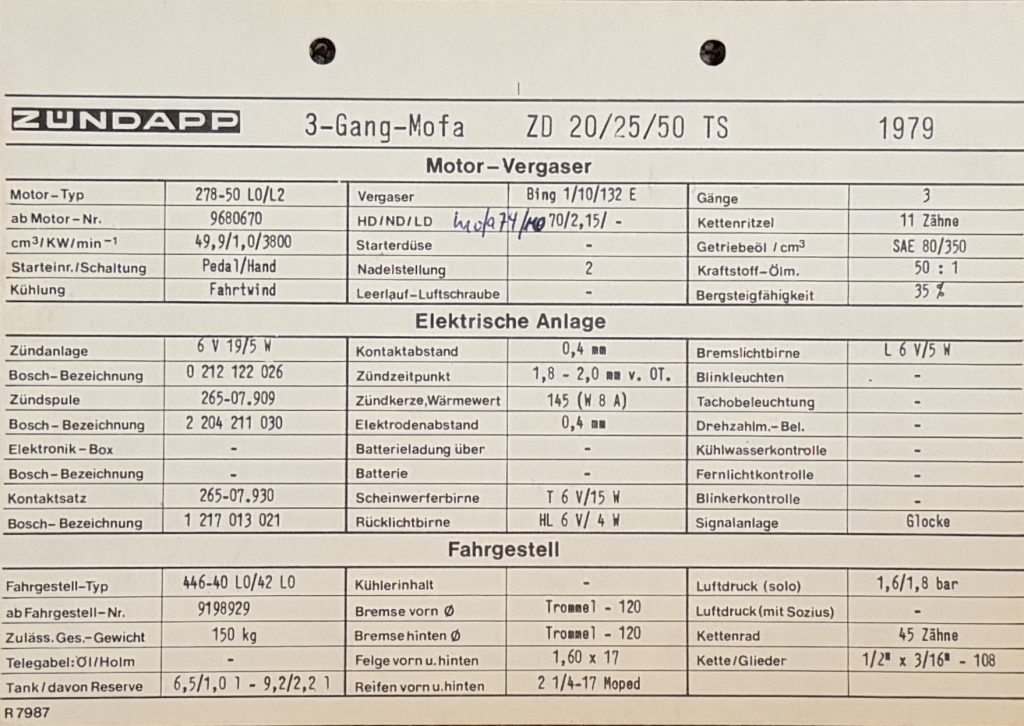 ZÜNDAPP 3-Gang-Mofa ZD 20/25/50 TS 1979
Motor-Vergaser
Motor-Typ 278-50 L0/L2 Vergaser Bing 1/10/132 E Gänge 3
ab Motor-Nr. 9680670 HD/ND/LD 70/2,15/ - Kettenritzel 11 Zähne
cm³/KW/min⁻¹ 49,9/1,0/3800 Starterdüse - Getriebeöl/cm³ SAE 80/350
Starteinr./Schaltung Pedal/Hand Nadelstellung 2 Kraftstoff-Ölm. 50 : 1
Kühlung Fahrtwind Leerlauf-Luftschraube - Bergsteigfähigkeit 35 %
Elektrische Anlage
Zündanlage 6 V 19/5 W Kontaktabstand 0,4 mm Bremslichtbirne L 6 V/5 W
Bosch-Bezeichnung 0 212 122 026 Zündzeitpunkt 1,8 - 2,0 mm v. OT. Blinkleuchten -
Zündspule 265-07.909 Zündkerze,Wärmewert 145 (W 8 A) Tachobeleuchtung -
Bosch-Bezeichnung 2 204 211 030 Elektrodenabstand 0,4 mm Drehzahlm.-Bel. -
Elektronik-Box - Batterieladung über - Kühlwasserkontrolle -
Bosch-Bezeichnung - Batterie - Fernlichtkontrolle -
Kontaktsatz 265-07.930 Scheinwerferbirne T 6 V/15 W Blinkerkontrolle -
Bosch-Bezeichnung 1 217 013 021 Rücklichtbirne HL 6 V/ 4 W Signalanlage Glocke
Fahrgestell
Fahrgestell-Typ 446-40 L0/42 L0 Kühlerinhalt - Luftdruck (solo) 1,6/1,8 bar
ab Fahrgestell-Nr. 9198929 Bremse vorn Ø Trommel - 120 Luftdruck (mit Sozius) -
Zuläss. Ges.-Gewicht 150 kg Bremse hinten Ø Trommel - 120 Kettenrad 45 Zähne
Telegabel: Öl/Holm - Felge vorn u. hinten 1,60 x 17 Kette/Glieder 1/2" x 3/16" - 108
Tank/davon Reserve 6,5/1,0 l - 9,2/2,2 l Reifen vorn u. hinten 2 1/4-17 Moped
R 7987